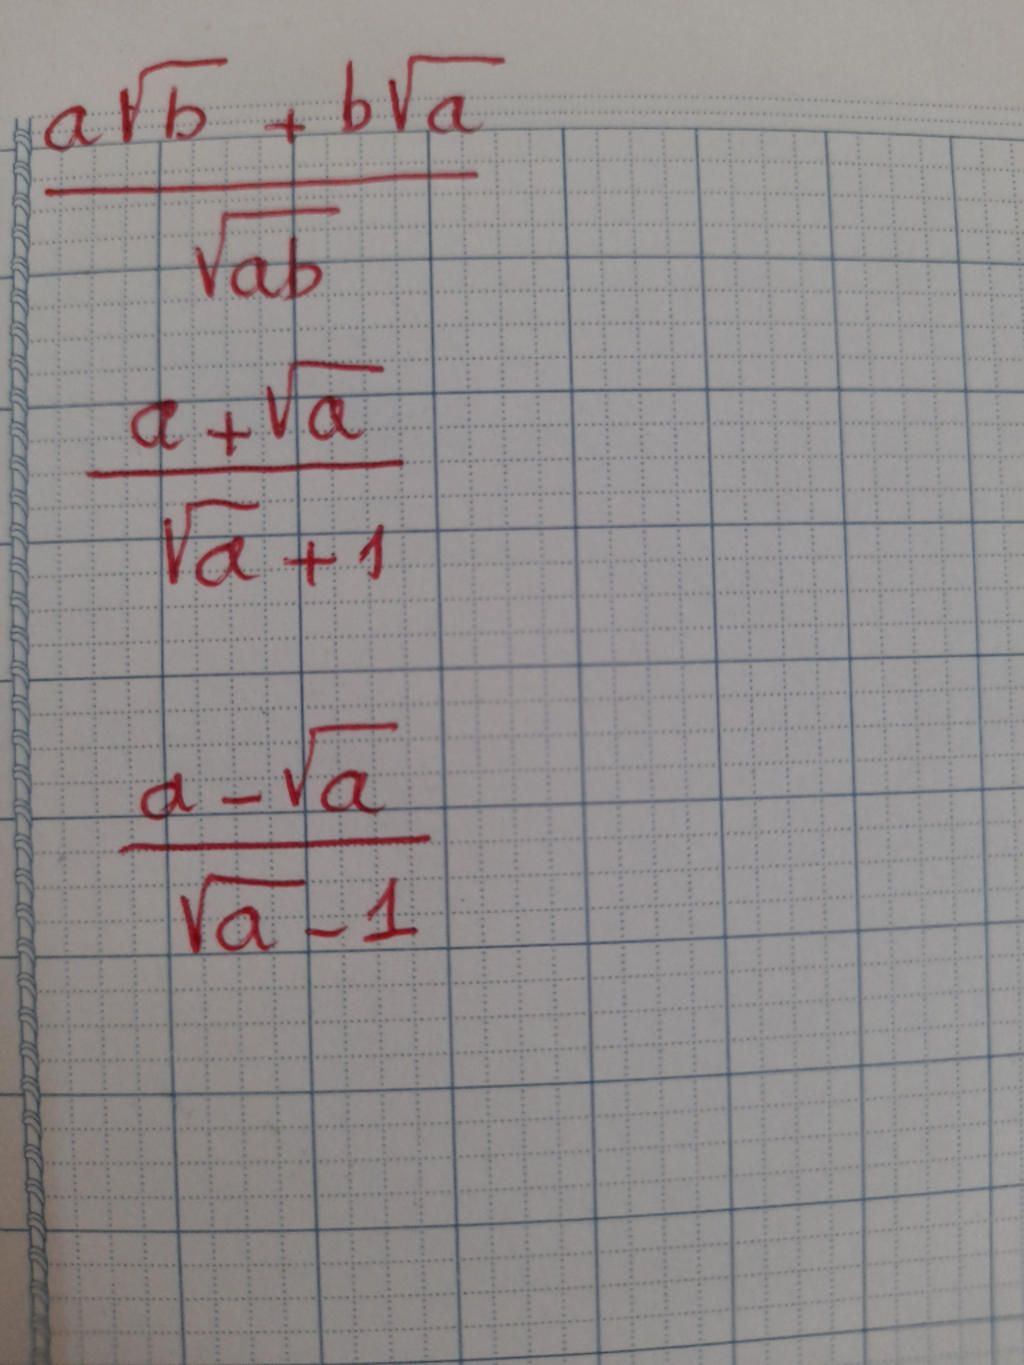 a√b + b√a
√ab
a + √a
√a + 1
a - √a
√a - 1